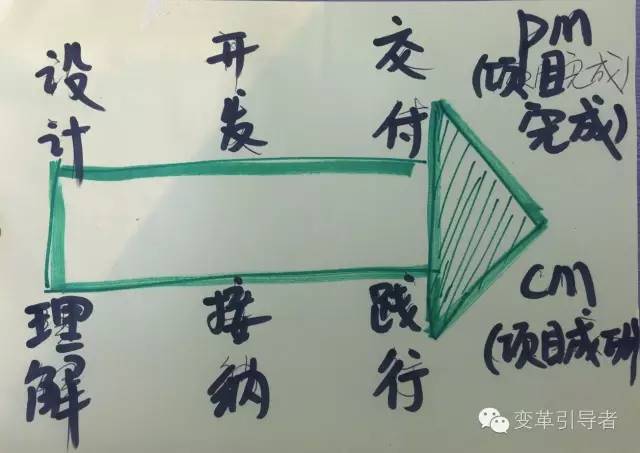 设计
开发
交付
pm
(项目
完成)
理解
接纳
践行
cm
(项目成功)
变革引导者